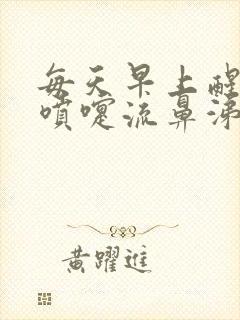 每天早上醒
噴嚏流鼻涕
黃躍進